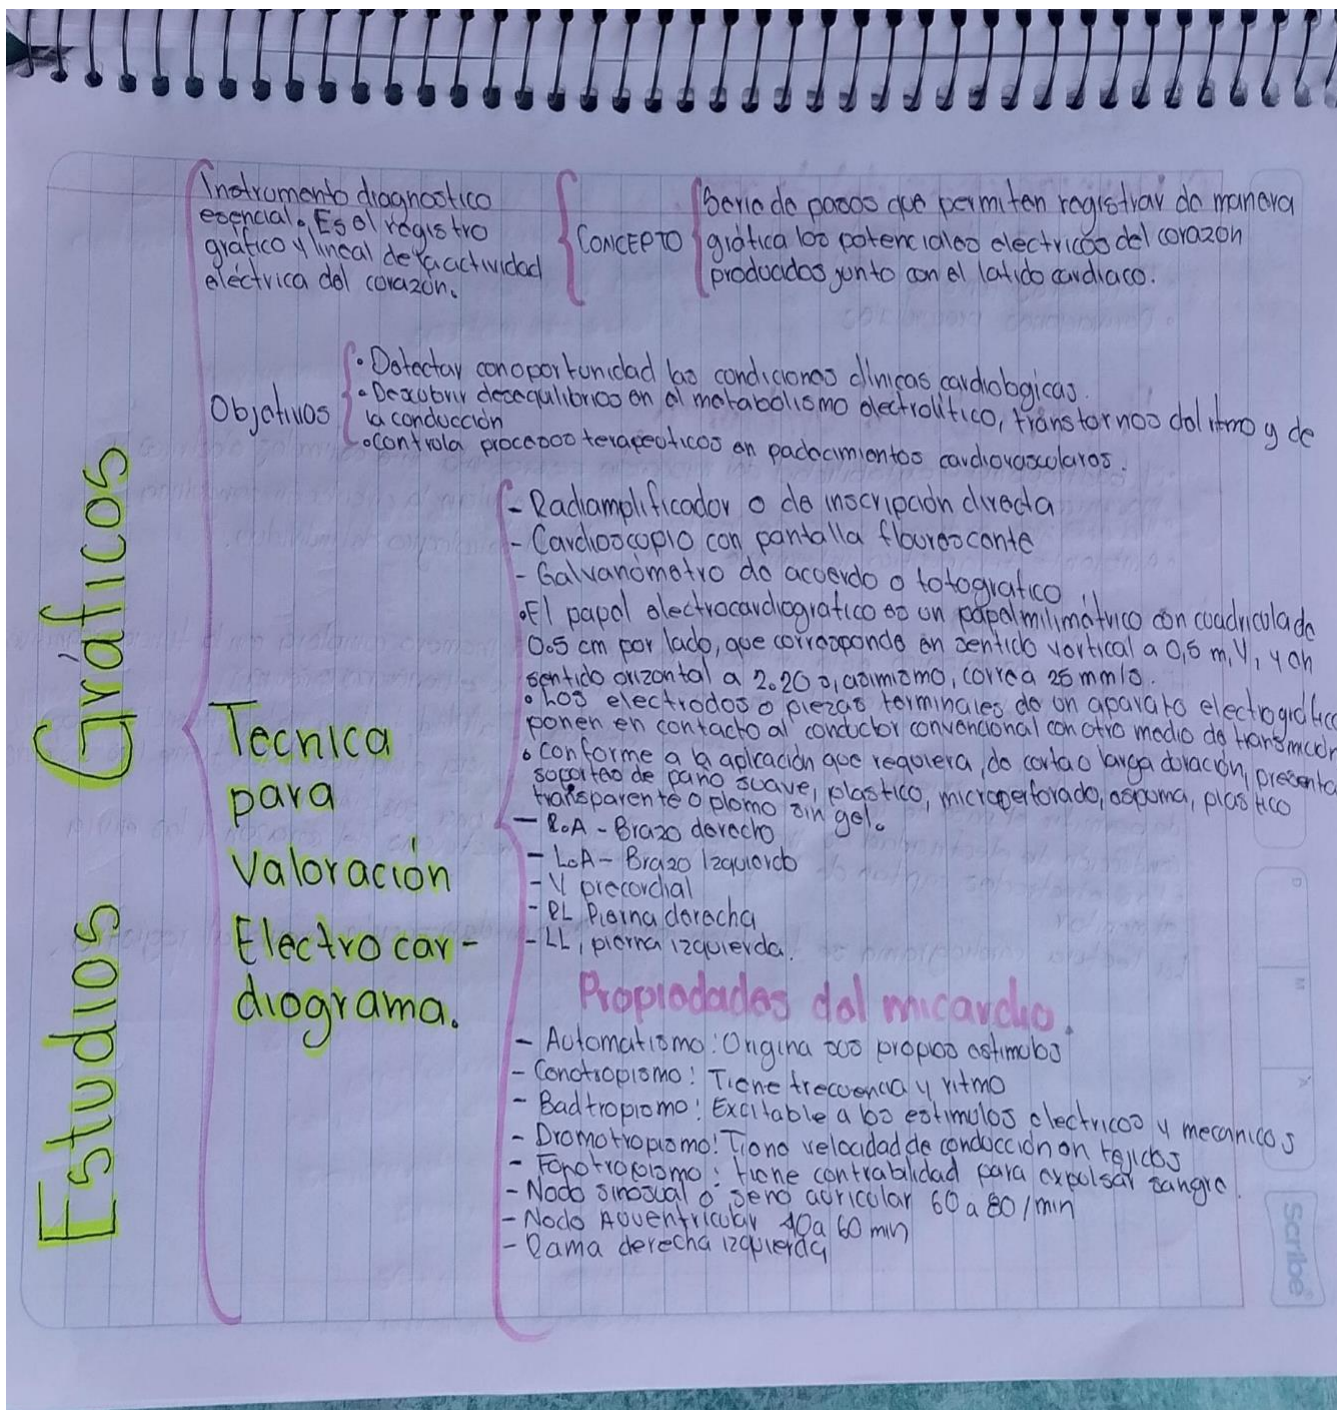 Estudios Gráficos
Instrumento diagnostico
esencial. Es el registro
grafico y lineal de la actividad
eléctrica del corazón.
CONCEPTO
Serie de pasos que permiten registrar de manera
gráfica los potenciales electricos del corazon
producidos junto con el latido cardiaco.
Objetivos
• Detectar con oportunidad las condiciones clínicas cardiologicas.
• Descubrir desequilibrios en el metabolismo electrolítico, transtornos del ritmo y de
la conducción
• Controla procesos terapeoticos en padecimientos cardiovasculares.
Tecnica
para
Valoración
Electrocar-
diograma.
- Radiamplificador o de inscripción directa
- Cardioscopio con pantalla flourescente
- Galvanómetro de acuerdo o fotografico
• El papel electrocardiografico es un papel milimetrico con cuadricula de
0.5 cm por lado, que corresponde en sentido vertical a 0,5 m.V, y en
sentido orizontal a 2.20 s, asimismo, corre a 25 mm/s.
• Los electrodos o piezas terminales de un aparato
ponen en contacto al conductor convencional con otro medio de
• Conforme a la aplicación que requiera, de corta o larga duración, presenta
soportes de paño suave, plastico, microperforado, espuma, plastico
transparente o plomo sin gel.
- R.A - Brazo derecho
- L.A - Brazo Izquierdo
- V precordial
- RL Pierna derecha
- LL, pierna izquierda.
Propiedades del micardio.
- Automatismo: Origina sus propios estimulos
- Conotropismo: Tiene frecuencia y ritmo
- Badtropismo: Excitable a los estimulos electricos y mecanicos
- Dromotropismo: Tiene velocidad de conducción en tejidos
- Fonotropismo: tiene contrabilidad para expulsar sangre.
- Nodo sinosual o seno auricular 60 a 80/min
- Nodo Auventricular 40 a 60 min
- Rama derecha izquierda
Scribe